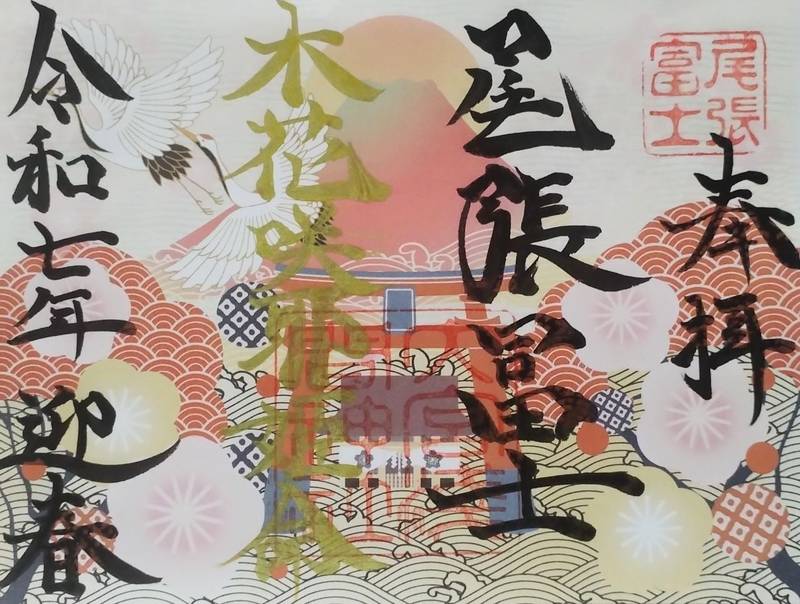 尾張
富士
奉拝
尾張冨士
木花咲耶姫命
令和七年 迎春